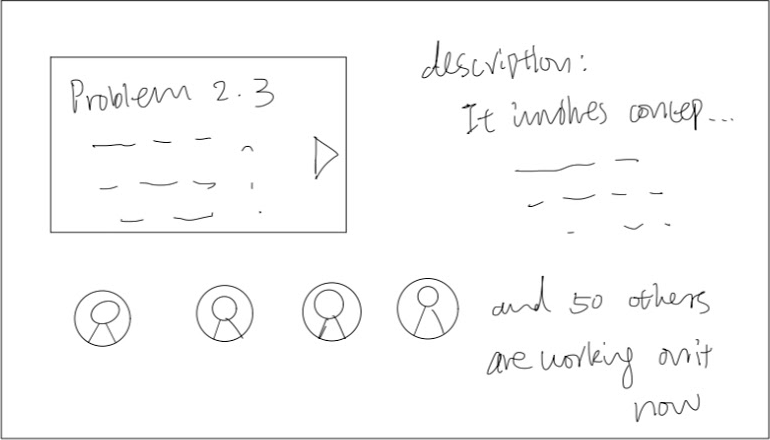 Problem 2.3
description:
It involves concep...
and 50 others
are working on it
now